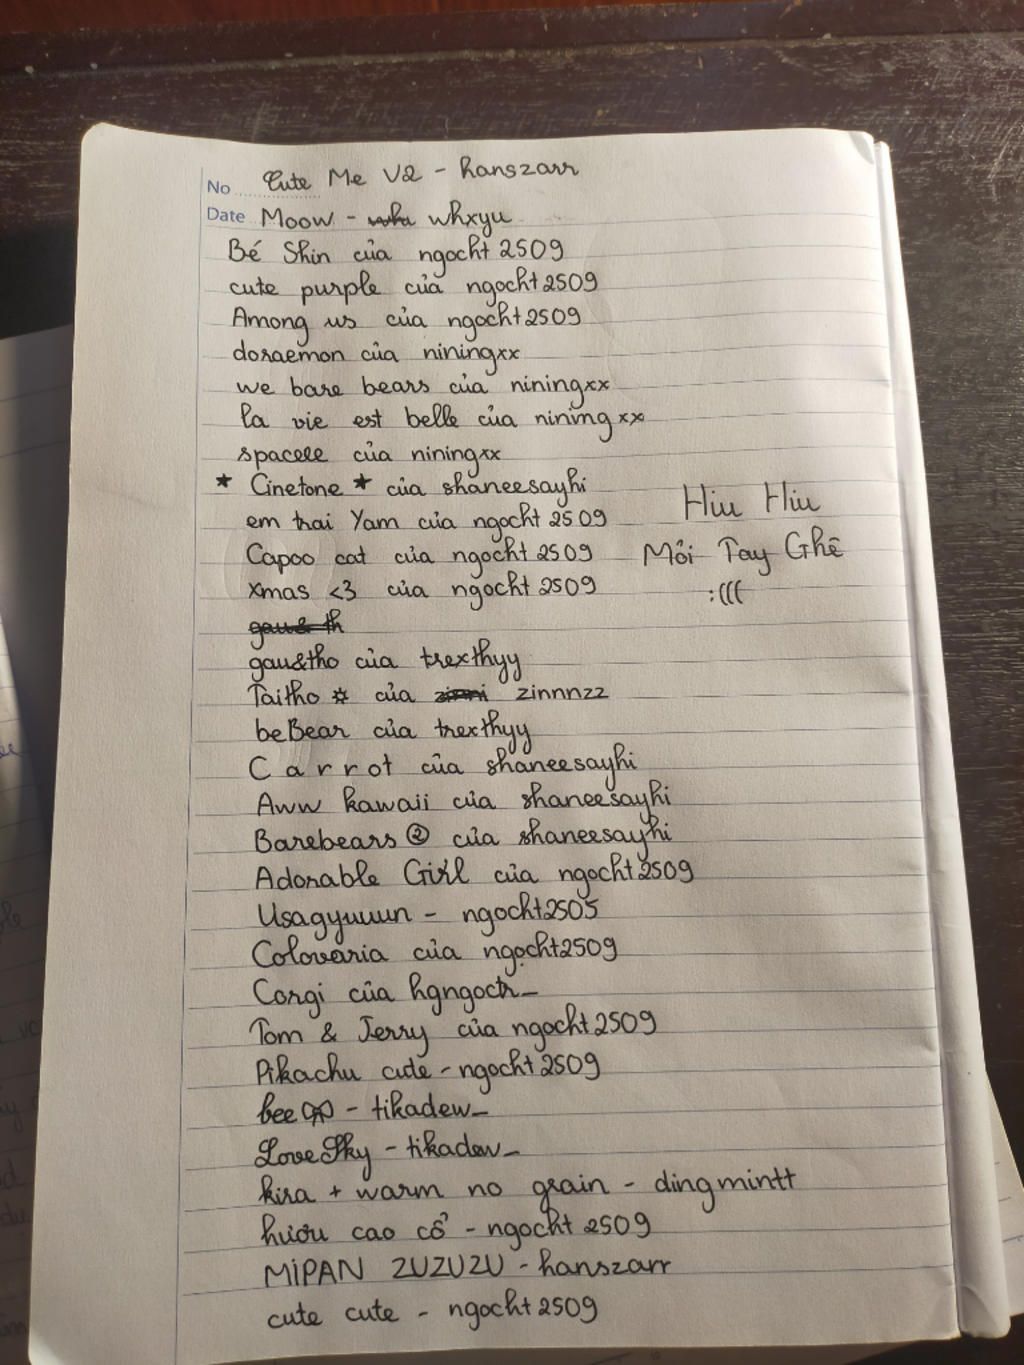 No Cute Me V2 - hanszarr
Date Moow - whxyu
Bé Shin của ngocht 2509
cute purple của ngocht2509
Among us của ngocht2509
doraemon của niningxx
we bare bears của niningxx
la vie est belle của niningxx
spacele của niningxx
* Cinetone * của shaneesayhi
em trai Yam của ngocht 2509
Capoo cat của ngocht 2509
xmas <3 của ngocht 2509
Hiu Hiu
Mỏi Tay Ghê
:(((
gau&th
gau&tho của trexthyy
Taitho ☼ của zinnnzz
beBear của trexthyy
C a r r o t của shaneesayhi
Aww kawaii của shaneesayhi
Barebears ② của shaneesayhi
Adorable Girl của ngocht2509
Usagyuuun - ngocht2505
Colovaria của ngocht2509
Corgi của hgngoctr_
Tom & Jerry của ngocht2509
Pikachu cute - ngocht2509
bee - tikadew_
LoveSky - tikadew_
kira + warm no grain - dingmintt
hươu cao cổ - ngocht 2509
MiPAN ZUZUZU - hanszarr
cute cute - ngocht2509